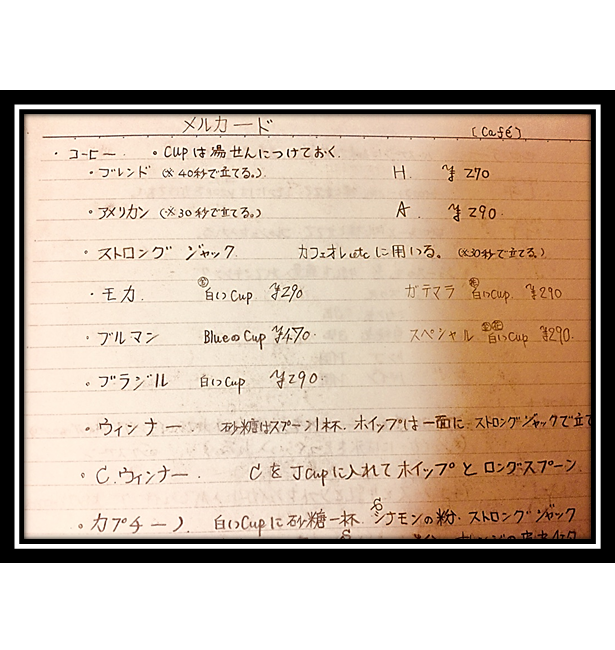 メルカード
(Café)
・コーヒー ・Cupは湯せんにつけておく.
・ブレンド (※40秒で立てる。) H. ¥270
・アメリカン (※30秒で立てる。) A. ¥290
・ストロング ジャック. カフェオレetcに用いる。(※30秒で立てる。)
・モカ. 白いCup ¥290 ガテマラ 白いCup. ¥290
・ブルマン BlueのCup ¥470 スペシャル 白いCup ¥290.
・ブラジル 白いCup ¥290.
・ウィンナー 砂糖はスプーン1杯. ホイップは一面に. ストロングジャックで立て
・C.ウィンナー. CをJCupに入れてホイップとロングスプーン.
・カプチーノ 白いCupに砂糖一杯. シナモンの粉. ストロングジャック